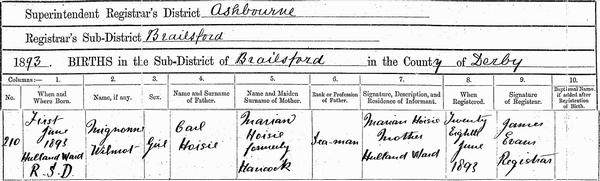 Superintendent Registrar's District Ashbourne
Registrar's Sub-District Brailsford
1893. BIRTHS in the Sub-District of Brailsford in the County of Derby
Columns:— 1. 2. 3. 4. 5. 6. 7. 8. 9. 10.
No. When and Where Born. Name, if any. Sex. Name and Surname of Father. Name and Maiden Surname of Mother. Rank or Profession of Father. Signature, Description, and Residence of Informant. When Registered. Signature of Registrar. Baptismal Name, if added after Registration of Birth.
210 First June 1893 Hulland Ward R.S.D. Mignonne Wilmot Girl Carl Hoisie Marian Hoisie formerly Hancock Sea-man Marian Hoisie Mother Hulland Ward Twenty Eighth June 1893 James Evans Registrar